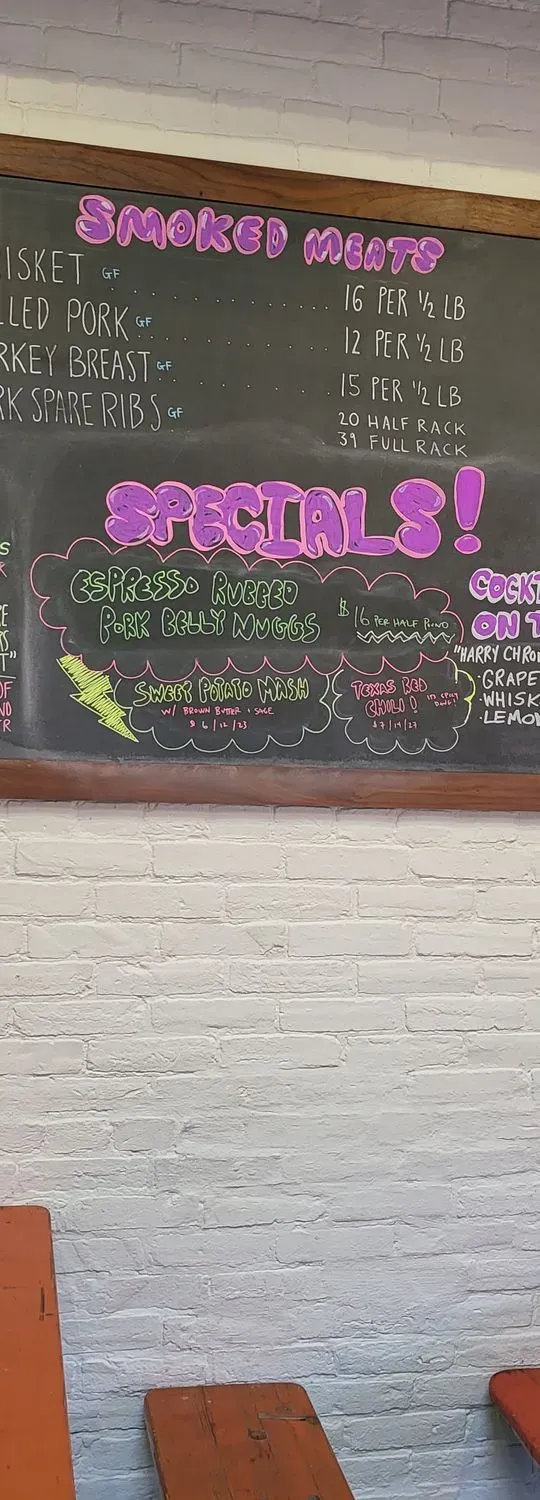 SMOKED MEATS
ISKET GF 16 PER 1/2 LB
LLED PORK GF 12 PER 1/2 LB
RKEY BREAST GF 15 PER 1/2 LB
RK SPARE RIBS GF 20 HALF RACK
39 FULL RACK
SPECIALS!
ESPRESSO RUBBED
PORK BELLY NUGGS $16 PER HALF POUND
SWEET POTATO MASH
W/ BROWN BUTTER & SAGE
$ 6/12/23
TEXAS RED
CHILI!
$7/14/27
COCKT
ON T
"HARRY CHRON
·GRAPE
·WHISK
·LEMON
S
R
E
S
T"
OF
ND
ER